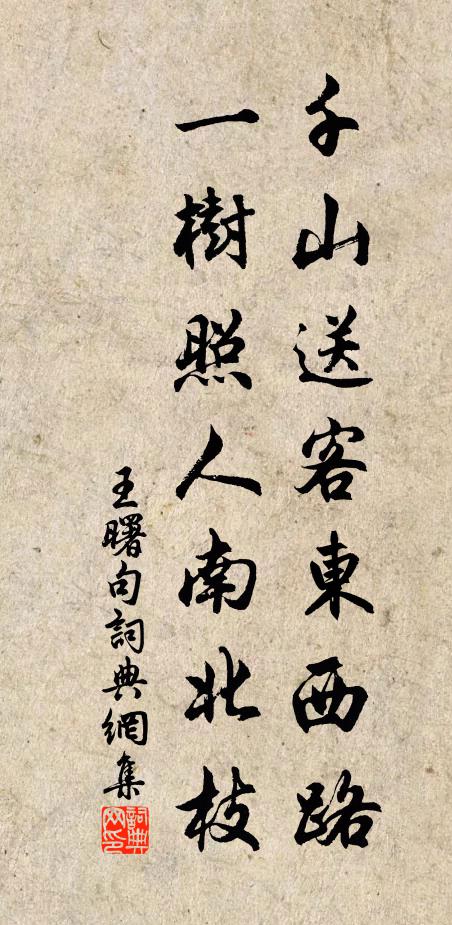 千山送客東西路
一樹照人南北枝
王曙句詞典網集
詞典網印